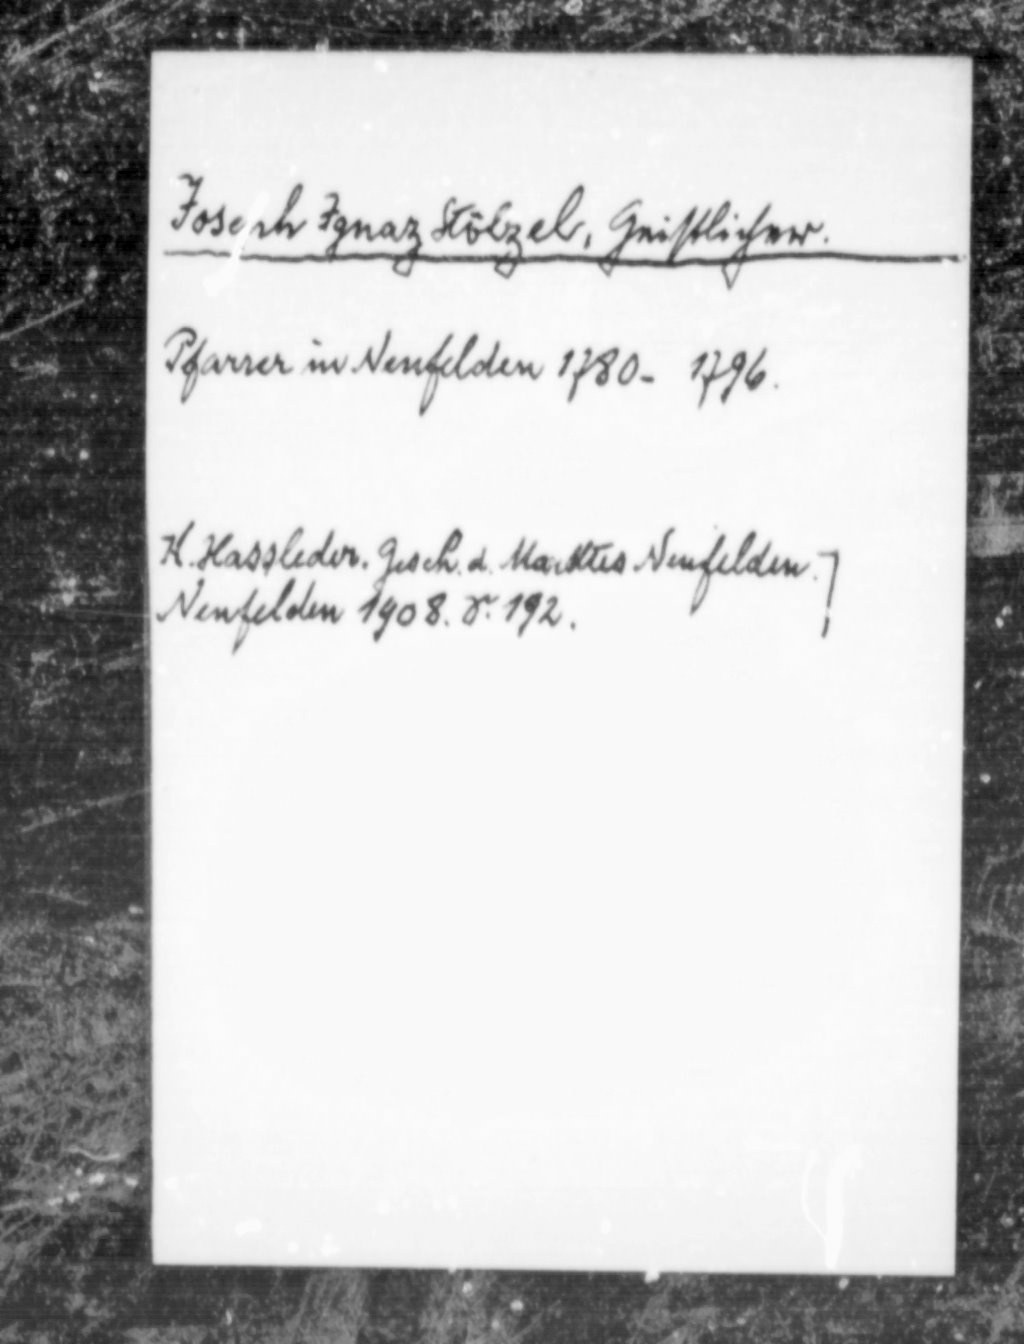 Joseph Ignaz Stölzel, Geistlicher.
Pfarrer in Neufelden 1780- 1796.
K. Hassleder. Gesch. d. Marktes Neufelden.
Neufelden 1908. S. 192.